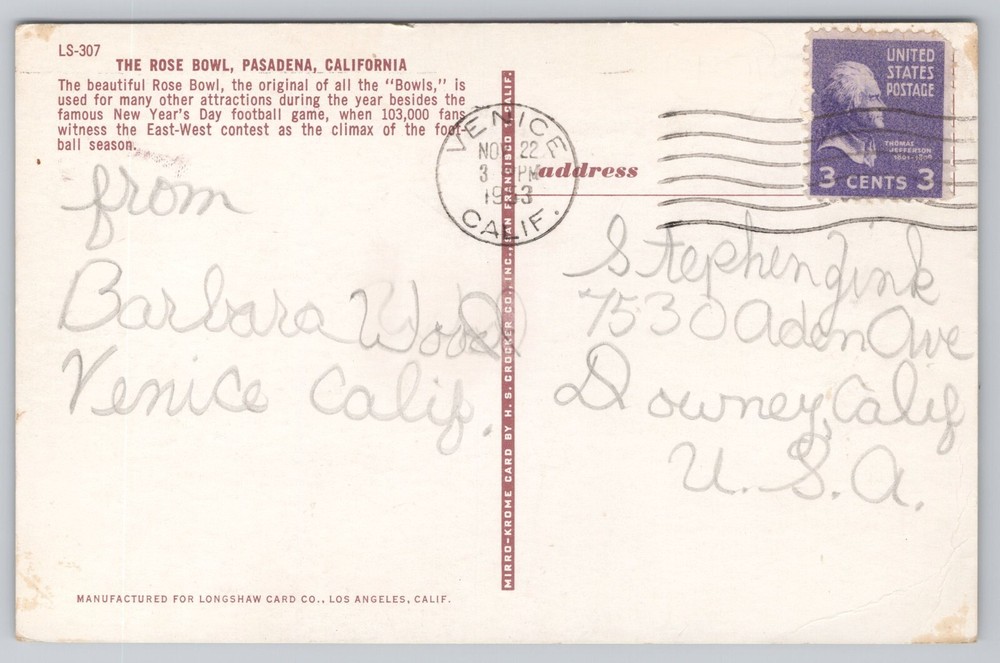 LS-307
THE ROSE BOWL, PASADENA, CALIFORNIA
The beautiful Rose Bowl, the original of all the "Bowls," is
used for many other attractions during the year besides the
famous New Year's Day football game, when 103,000 fans
witness the East-West contest as the climax of the foot-
ball season.
from
Barbara Wood
Venice Calif.
MANUFACTURED FOR LONGSHAW CARD CO., LOS ANGELES, CALIF.
MIRRO-KROME CARD BY H. S. CROCKER CO., INC., SAN FRANCISCO CALIF.
VENICE
NOV 22
3 PM
CALIF.
address
UNITED
STATES
POSTAGE
THOMAS
JEFFERSON
3 CENTS 3
Stephen Zink
7530 Aden Ave
Downey, Calif
U.S.A.